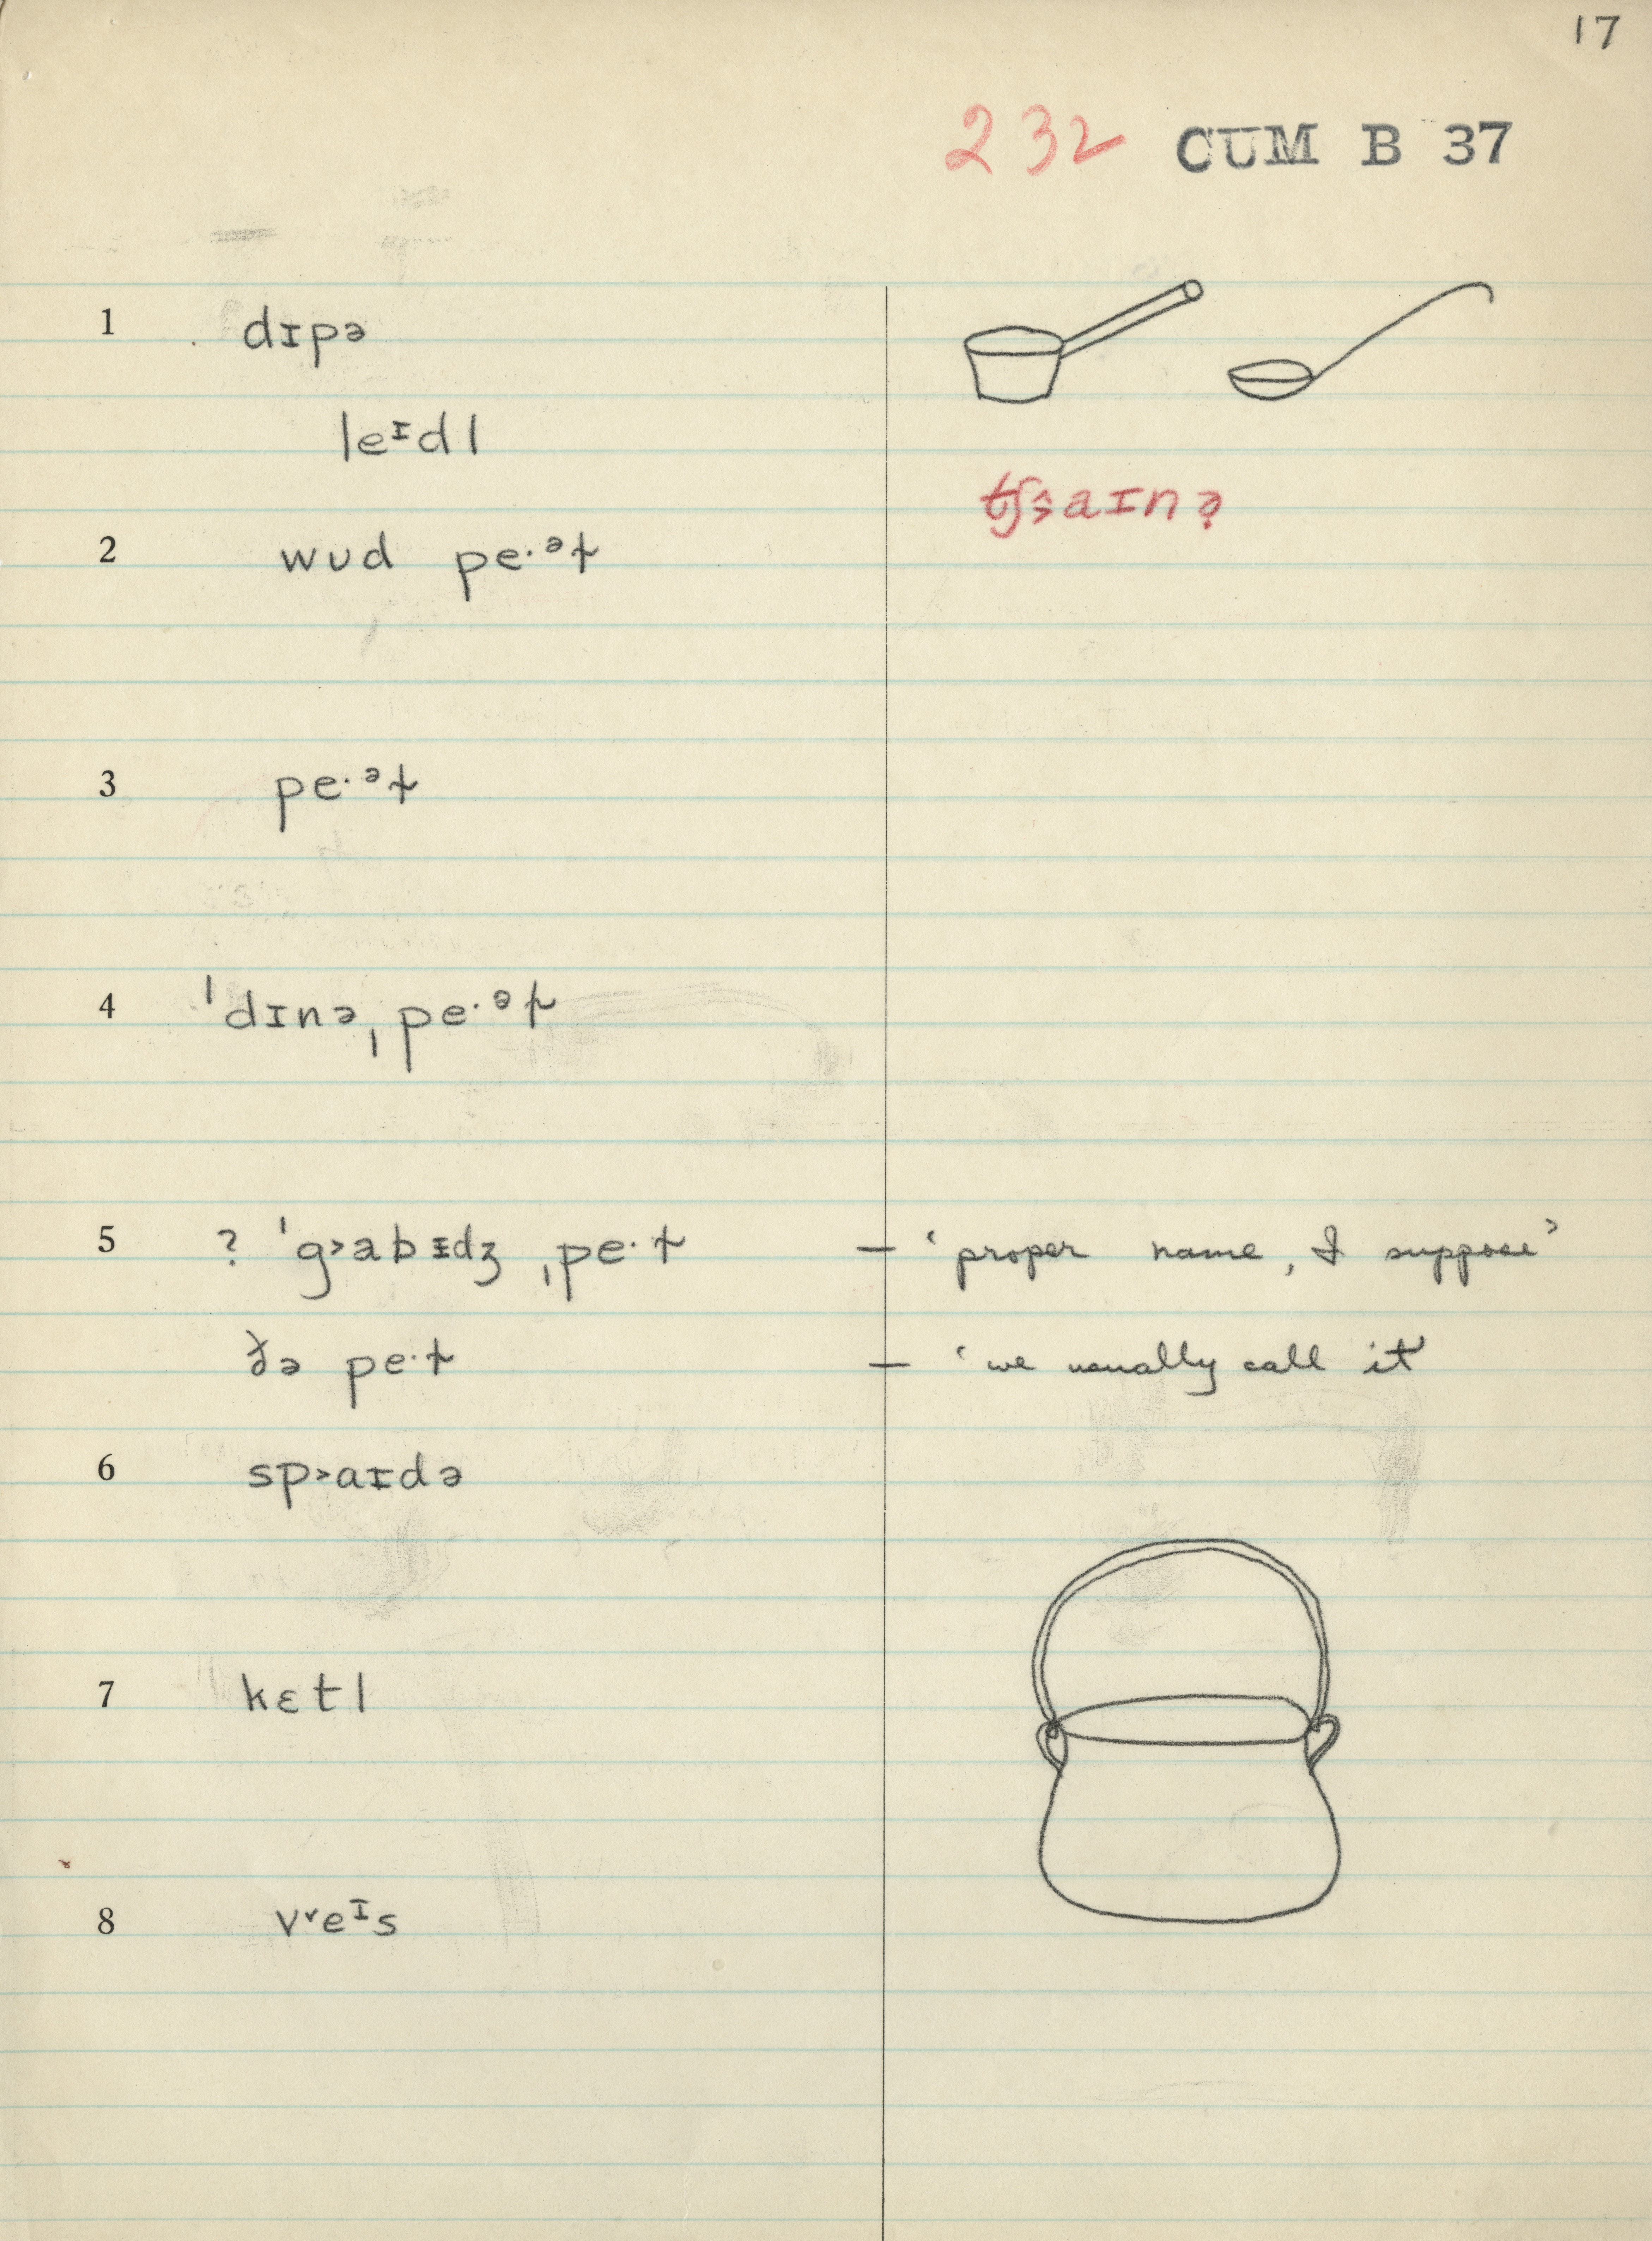 17
232 CUM B 37
1 dɪpə
leᶦdl
2 wʊd pe·ᵊt
3 pe·ᵊt
4 ˈdɪnəˌpe·ᵊt
5 ? ˈg˃abɪdʒ ˌpe·t — ‘proper name, I suppose’
ðə pe·t — ‘we usually call it’
6 sp˃aɪdə
7 kɛtl
8 v˅eᶦs